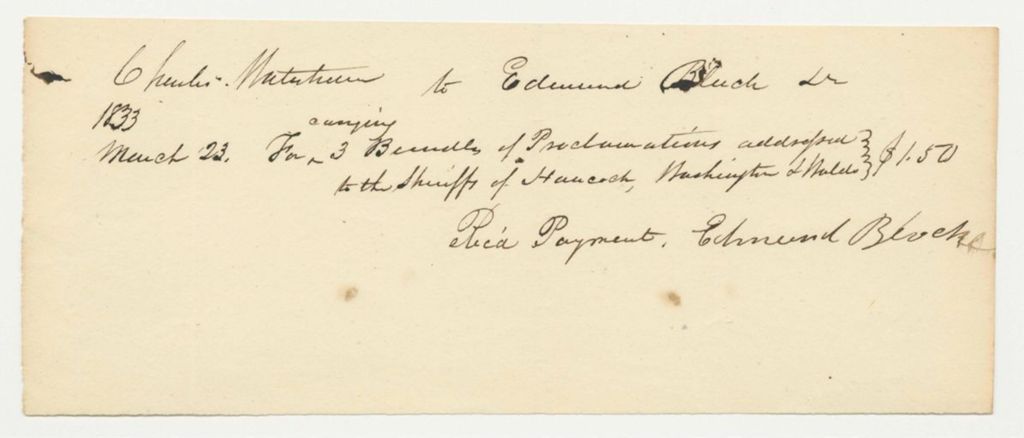 Charles Waterhouse to Edmund Bleck Dr
1833
carrying
March 23. For 3 Bundles of Proclamations addressed
to the Sheriffs of Hancock, Washington & Waldo } $1.50
Rec'd Payment. Edmund Bleck